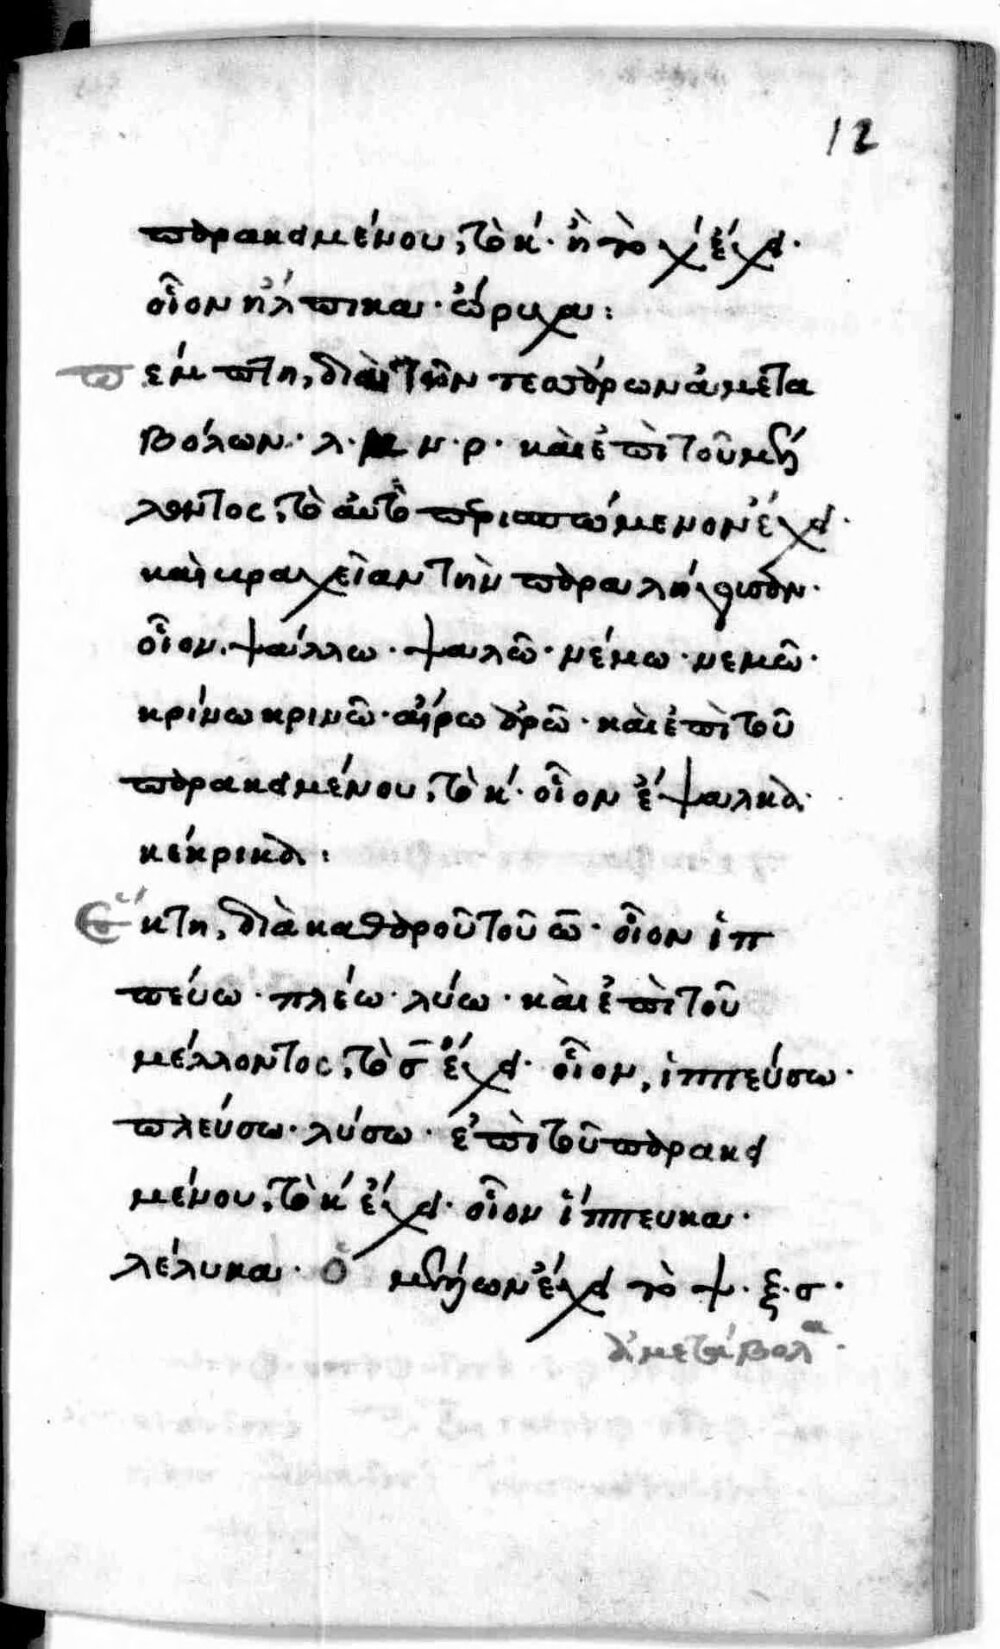 12
παρακειμένου, τὸ κ· ἢ τὸ χ ἔχει·
οἷον ἤλπικα· ὤρυχα:
πέμπτη, διὰ τῶν τεσσάρων ἀμετα
βόλων· λ· μ ν· ρ· καὶ ἐπὶ τοῦ μέλ
λοντος, τὸ αὐτὸ περισπώμενον ἔχει·
καὶ βραχεῖαν τὴν παραλήγουσαν·
οἷον, ψάλλω· ψαλῶ· νέμω· νεμῶ·
κρίνω κρινῶ· αἴρω ἀρῶ· καὶ ἐπὶ τοῦ
παρακειμένου, τὸ κ· οἷον ἔψαλκα·
κέκρικα:
Ἕκτη, διὰ καθαροῦ τοῦ ω· οἷον ἱπ
πεύω· πλέω· λύω· καὶ ἐπὶ τοῦ
μέλλοντος, τὸ σ ἔχει· οἷον, ἱππεύσω·
πλεύσω· λύσω· ἐπὶ τοῦ παρακει
μένου, τὸ κ ἔχει· οἷον ἵππευκα·
λέλυκα· ὁ μέλλων ἔχει τὸ ψ· ξ· σ·
ἀμετάβολα·